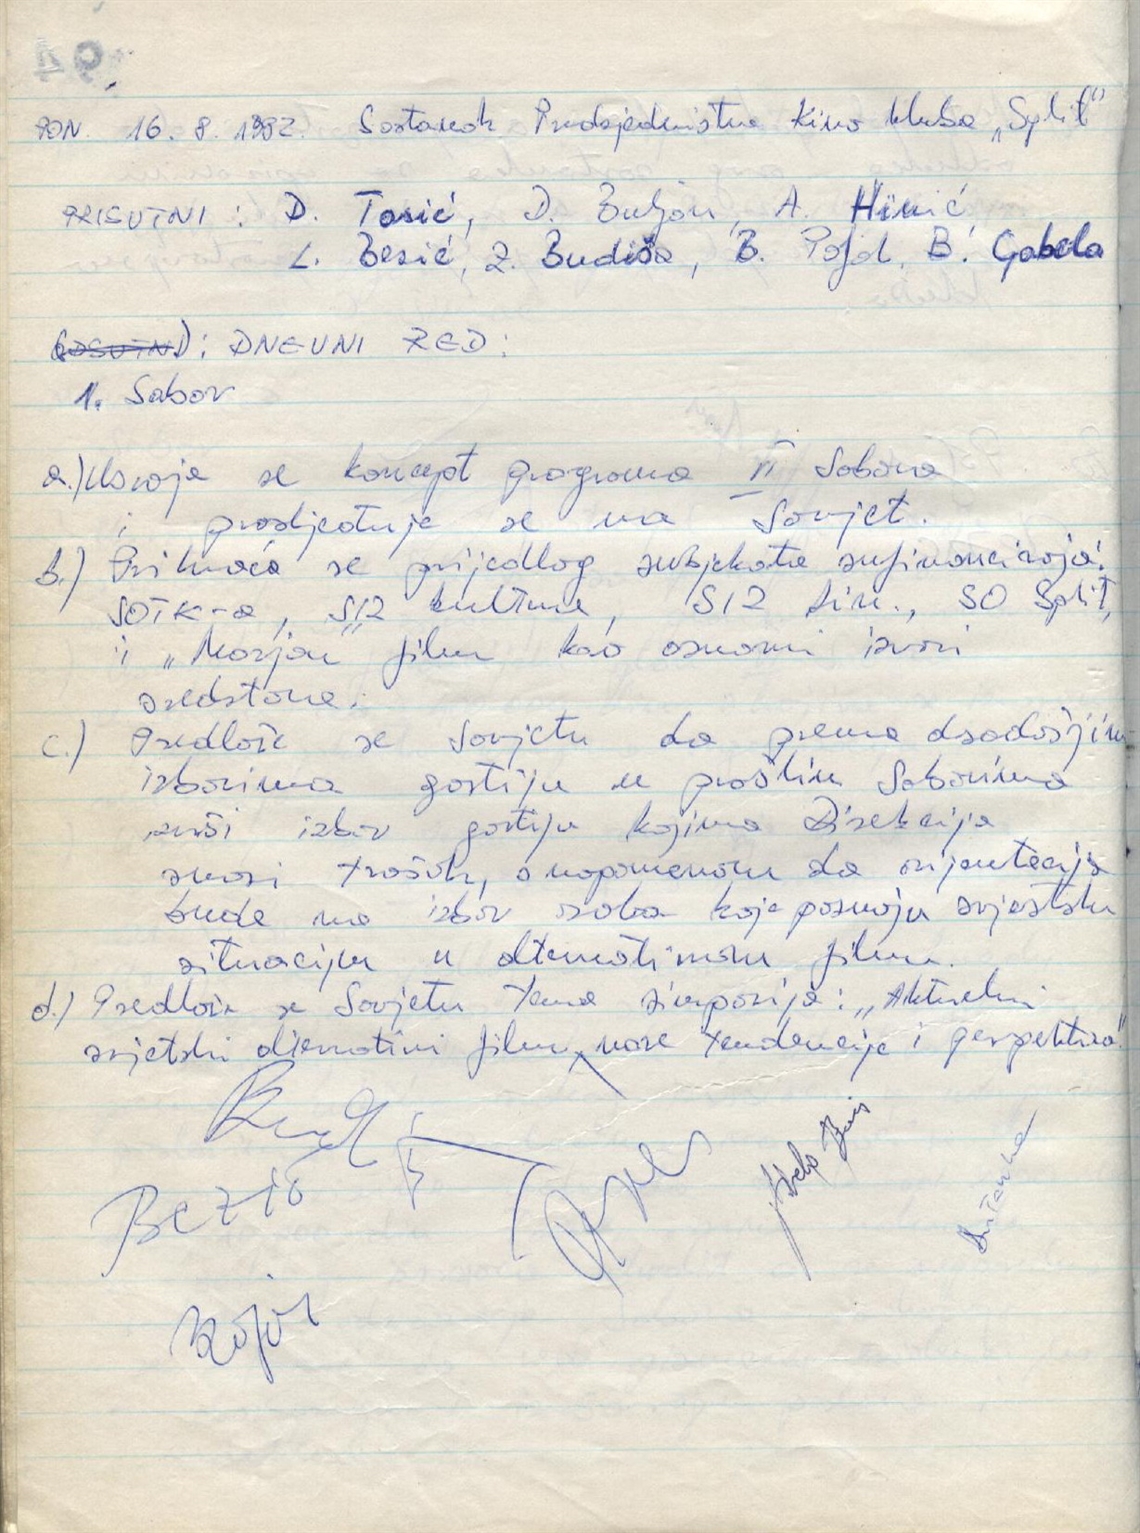 PON. 16. 8. 1982. Sastanak Predsjedništva Kino kluba „Split"
PRISUTNI: D. Tasić, D. Buljan, A.
L. Bezić, Z. Budiša, B. B. Gabela
DNEVNI RED:
1. Sabor
a.) Usvaja se koncept programa VI Sabora
i prosljeđuje se na Savjet.
b.) Prihvaća se prijedlog subjekata sufinanciranja:
SOTK-a, SIZ kulture, SIZ SO Split,
i „Marjan" film kao osnovni izvori
sredstava.
c.) Predlaže se Savjetu da prema dosadašnjim
izborima gostiju u prošlim Saborima
izvrši izbor gostiju kojima Direkcija
snosi trošak, s napomenom da orijentacija
bude na izbor osoba koje poznaju svjetsku
situaciju u alternativnom filmu.
d.) Predlaže se Savjetu tema simpozija: „Aktuelni
svjetski alternativni film, nove tendencije i perspektiva"
Bezić